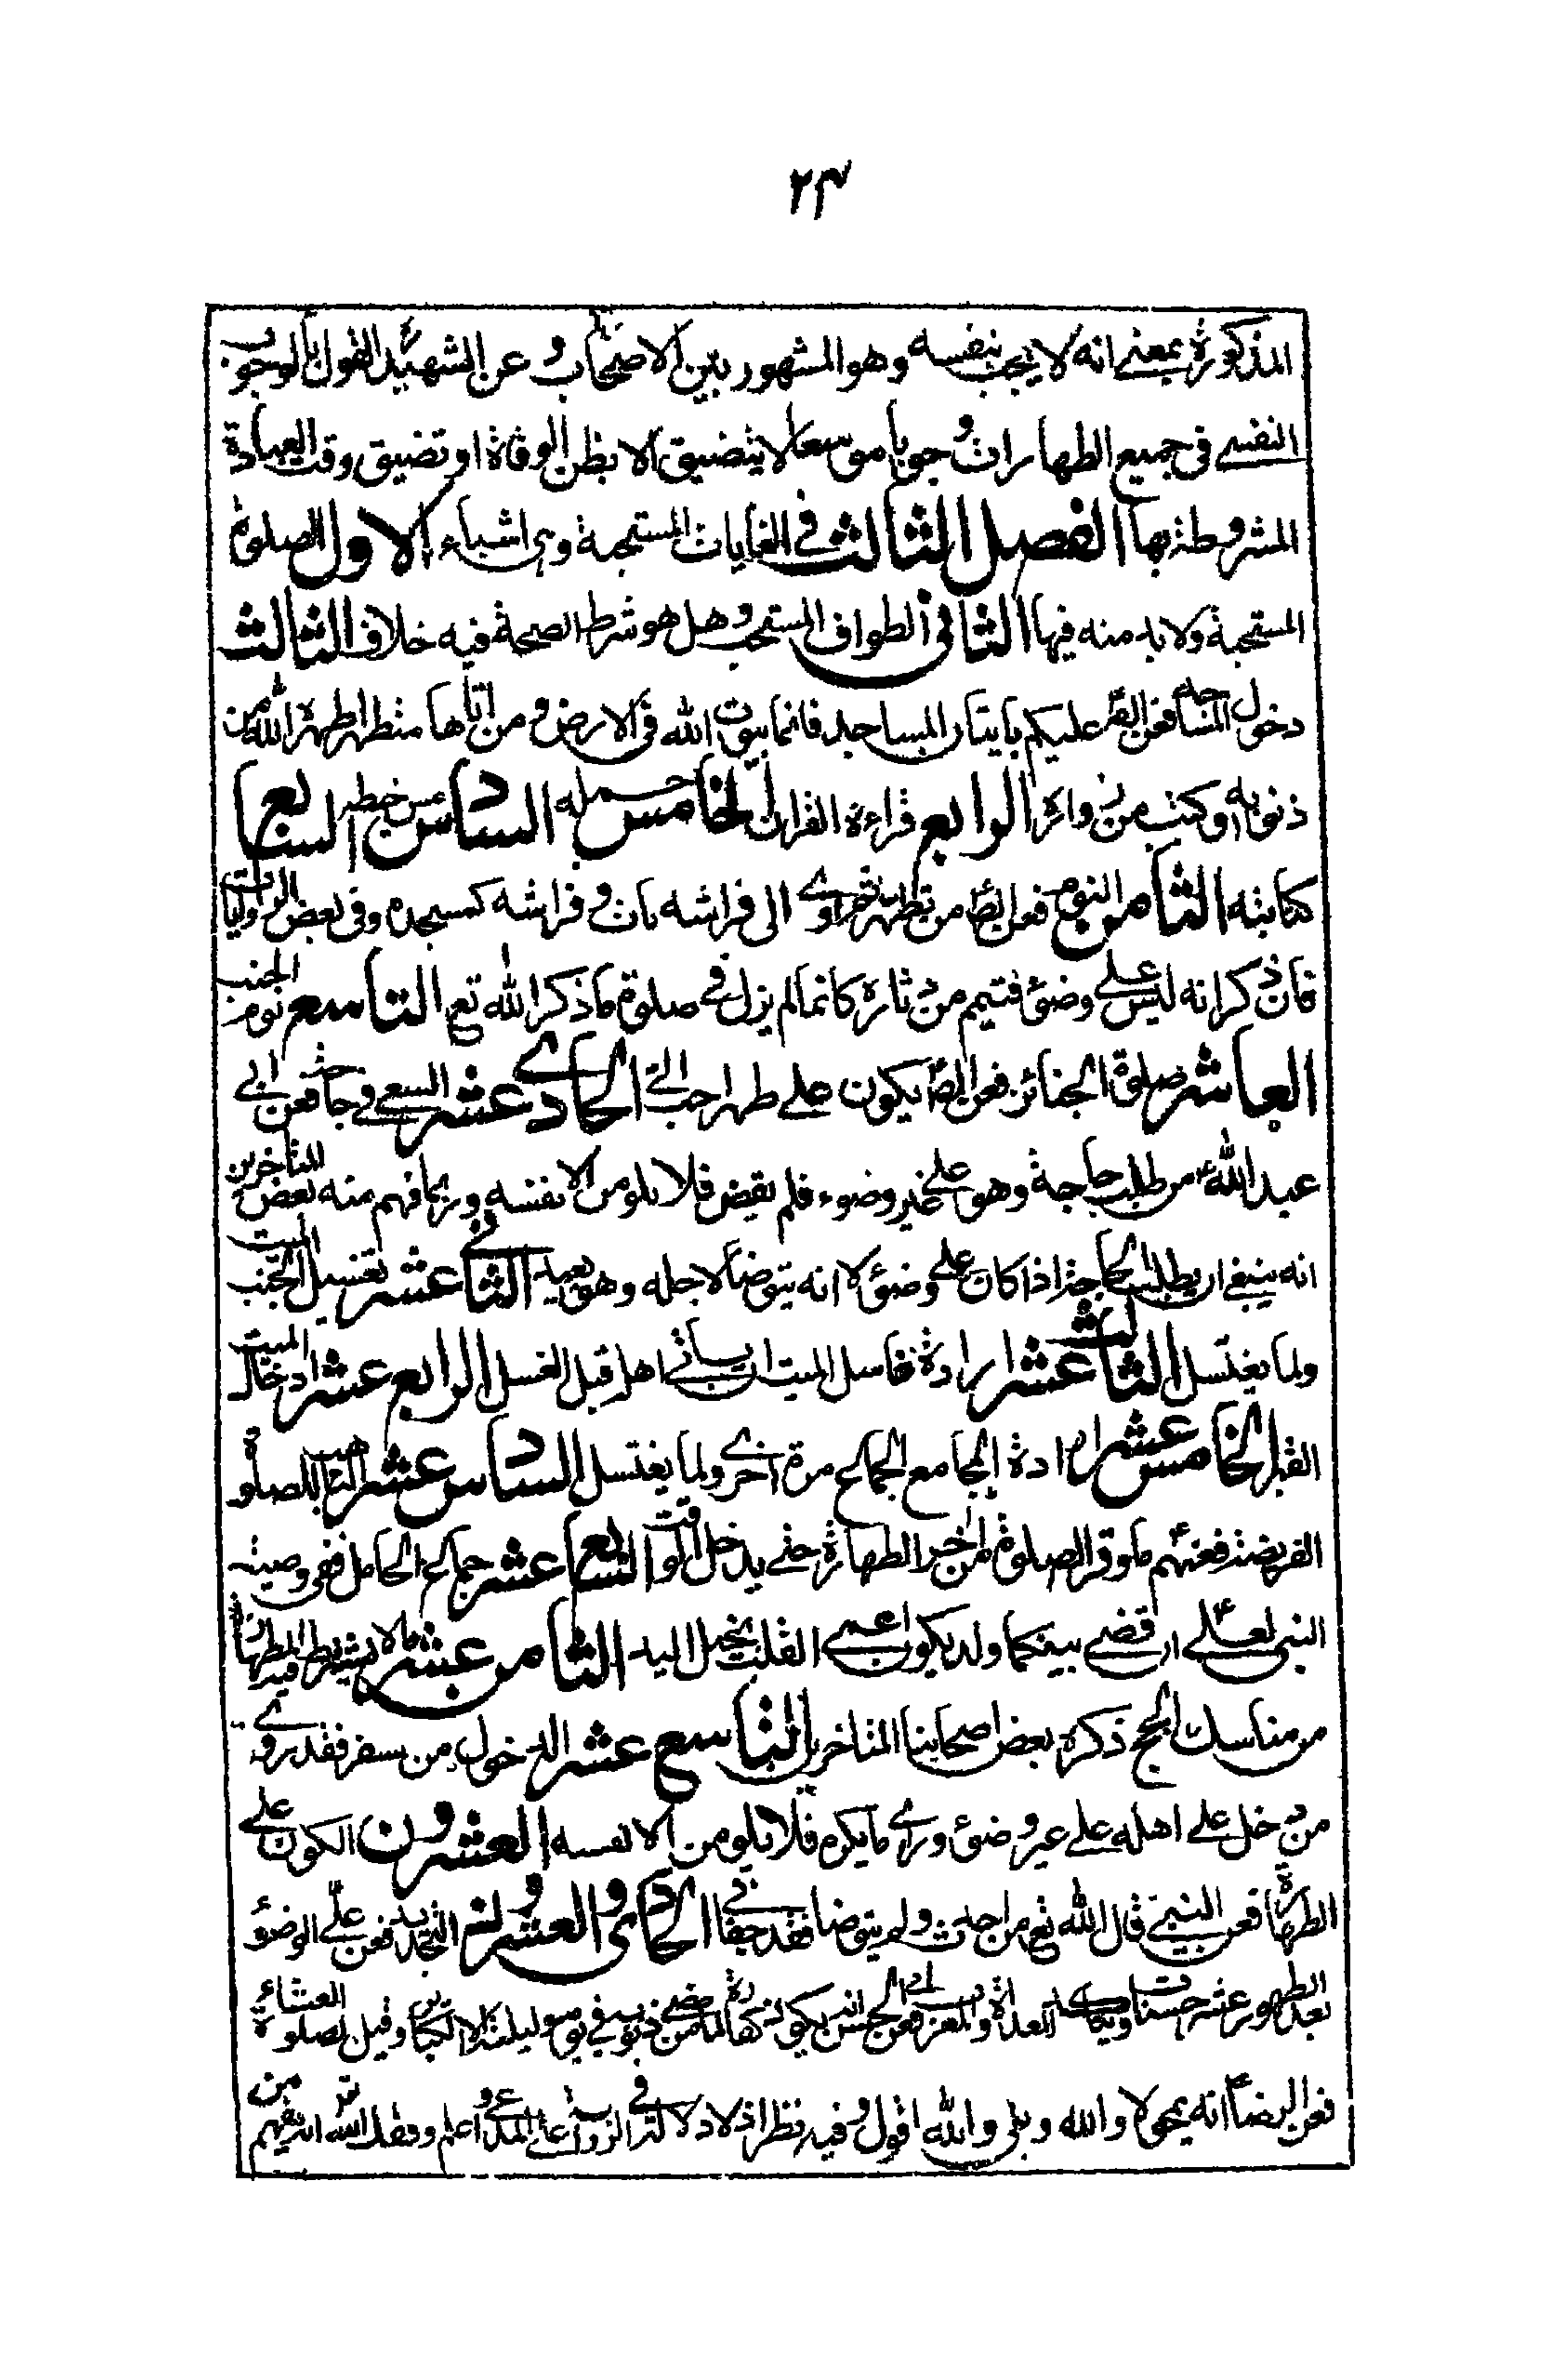 ٢٣
المذكورة بمعنى انه لا يجب بنفسه وهو المشهور بين الاصحاب و عن الشهيد القول بالوجوب
النفسى فى جميع الطهارات وجوبا موسعا لا يتضيق الا بظن الوفاة او تضيق وقت العبادة
المشروطة بها الفصل الثالث فى الغايات المستحبة وهى اشياء الاول الصلوة
المستحبة ولا بد منه فيها الثانى الطواف المستحب وهل هو شرط الصحة فيه خلاف الثالث
دخول المساجد فعن الصّ عليكم باتيان المساجد فانها بيوت الله فى الارض و من اتاها متطهرا طهره الله من
ذنوبه وكتب من زواره الرابع قراءة القران الخامس حمله السادس مس خطه السابع
كتابته الثامن النوم فعن الصّ من تطهر ثم اوى الى فراشه بات و فراشه كمسجده وفى بعض الروايات
فان ذكر انه ليس على وضوء فتيمم من دثاره كائنا لم يزل فى صلوة ما ذكر الله تع التاسع نوم الجنب
العاشر صلوة الجنائز فعن الصّ يكون على طهر احب الىّ الحادى عشر السعى فى حاجة فعن ابى
عبد اللهؑ من طلب حاجة وهو على غير وضوء فلم يقض فلا يلومن الا نفسه وربما فهم منه بعض المتاخرين
انه ينبغى ان يطلب الحاجة اذا كان على وضوء لا انه يتوضأ لاجله وهو بعيد الثانى عشر تغسيل الجنب الميت
ولما يغتسل الثالث عشر ارادة غاسل الميت ان ياتى اهله قبل الغسل الرابع عشر ادخال الميت
القبر الخامس عشر ارادة المجامع الجماع مرة اخرى ولما يغتسل السادس عشر التاهب للصلوة
الفريضة فعنهمؑ ما وقر الصلوة من اخر الطهارة حتى يدخل الوقت السابع عشر جماع الحامل ففى وصية
النبى لعلىؑ ان قضى بينكما ولد يكون اعمى القلب بخيل اليد الثامن عشر ما لا يشترط فيه الطهارة
من مناسك الحج ذكره بعض اصحابنا المتاخرين التاسع عشر الدخول من سفر فقد روى
من دخل على اهله على غير وضوء وراى ما يكره فلا يلومن الا نفسه العشرون الكون على
الطهارة فعن النبىؐ قال الله تع من احدث ولم يتوضا فقد جفانى الحادى والعشرون التجديد فعن علىؑ الوضوء
بعد الطهور عشر حسنات ويتاكد الغداة والمغرب فعن ابى الحسن انه يكون كفارة لما مضى من ذنوبه فى يومه وليلته الا الكبائر وقيل لصلوة العشاء
فعن الرضاؑ انه يمحو لا والله وبلى والله اقول وفيه نظر اذ لا دلالة فى الرواية على المدعى و اعلم وفقك الله انه يفهم من